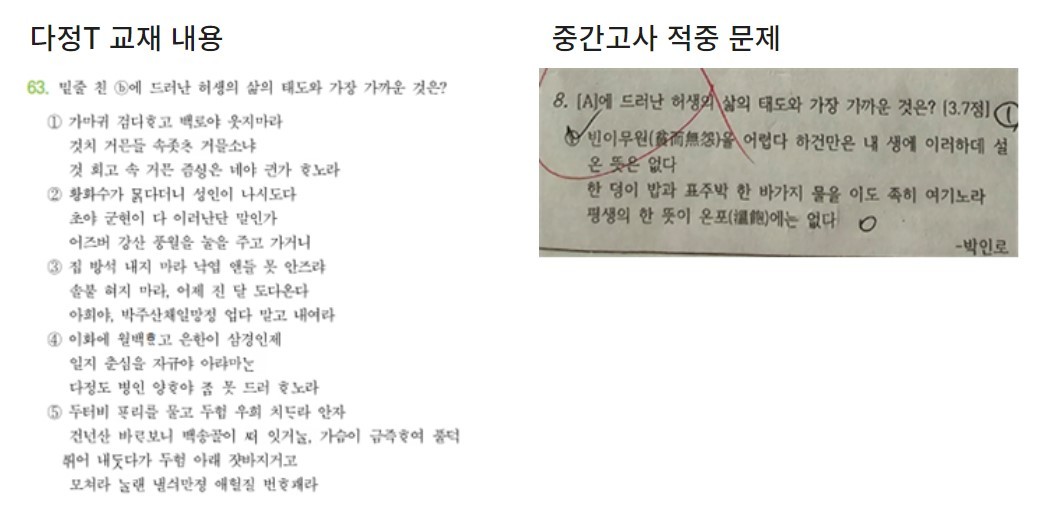 다정T 교재 내용
63. 밑줄 친 ⓑ에 드러난 허생의 삶의 태도와 가장 가까운 것은?
① 가마귀 검다ᄒᆞ고 백로야 웃지마라
것치 거믄들 속좃ᄎᆞ 거믈소냐
것 희고 속 거믄 즘싱은 네야 귄가 ᄒᆞ노라
② 황화수가 ᄆᆞᆰ다더니 성인이 나시도다
초야 군현이 다 이러난단 말인가
어즈버 강산 풍월을 눌을 주고 가거니
③ 집 방석 내지 마라 낙엽 앤들 못 안즈랴
솔불 혀지 마라, 어제 진 달 도다온다
아희야, 박주산채일망정 업다 말고 내여라
④ 이화에 월백ᄒᆞ고 은한이 삼경인제
일지 춘심을 자규야 아랴마ᄂᆞᆫ
다정도 병인 양ᄒᆞ야 ᄌᆞᆷ 못 드러 ᄒᆞ노라
⑤ 두터비 ᄑᆞ리를 물고 두험 우희 치ᄃᆞ라 안자
건넌산 바ᄅᆞ보니 백송골이 ᄯᅥ 잇거ᄂᆞᆯ, 가슴이 금즉ᄒᆞ여 풀덕
ᄯᅱ어 내ᄃᆞᆺ다가 두험 아래 쟛바지거고
모쳐라 ᄂᆞᆯ랜 낼싀만졍 애헐질 번ᄒᆞ괘라
중간고사 적중 문제
8. [A]에 드러난 허생의 삶의 태도와 가장 가까운 것은? [3.7점] ①
① 빈이무원(貧而無怨)을 어렵다 하건만은 내 생애 이러하데 설
온 뜻은 없다
한 덩이 밥과 표주박 한 바가지 물을 이도 족히 여기노라
평생의 한 뜻이 온포(溫飽)에는 없다
-박인로